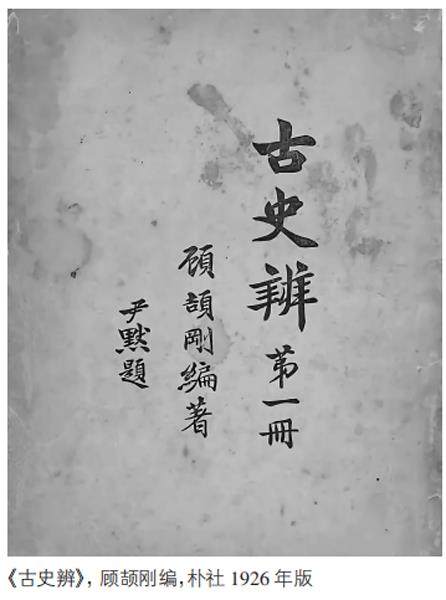 古史辨 第一冊
顧頡剛編著
尹默題
《古史辨》，顾颉刚编，朴社 1926 年版